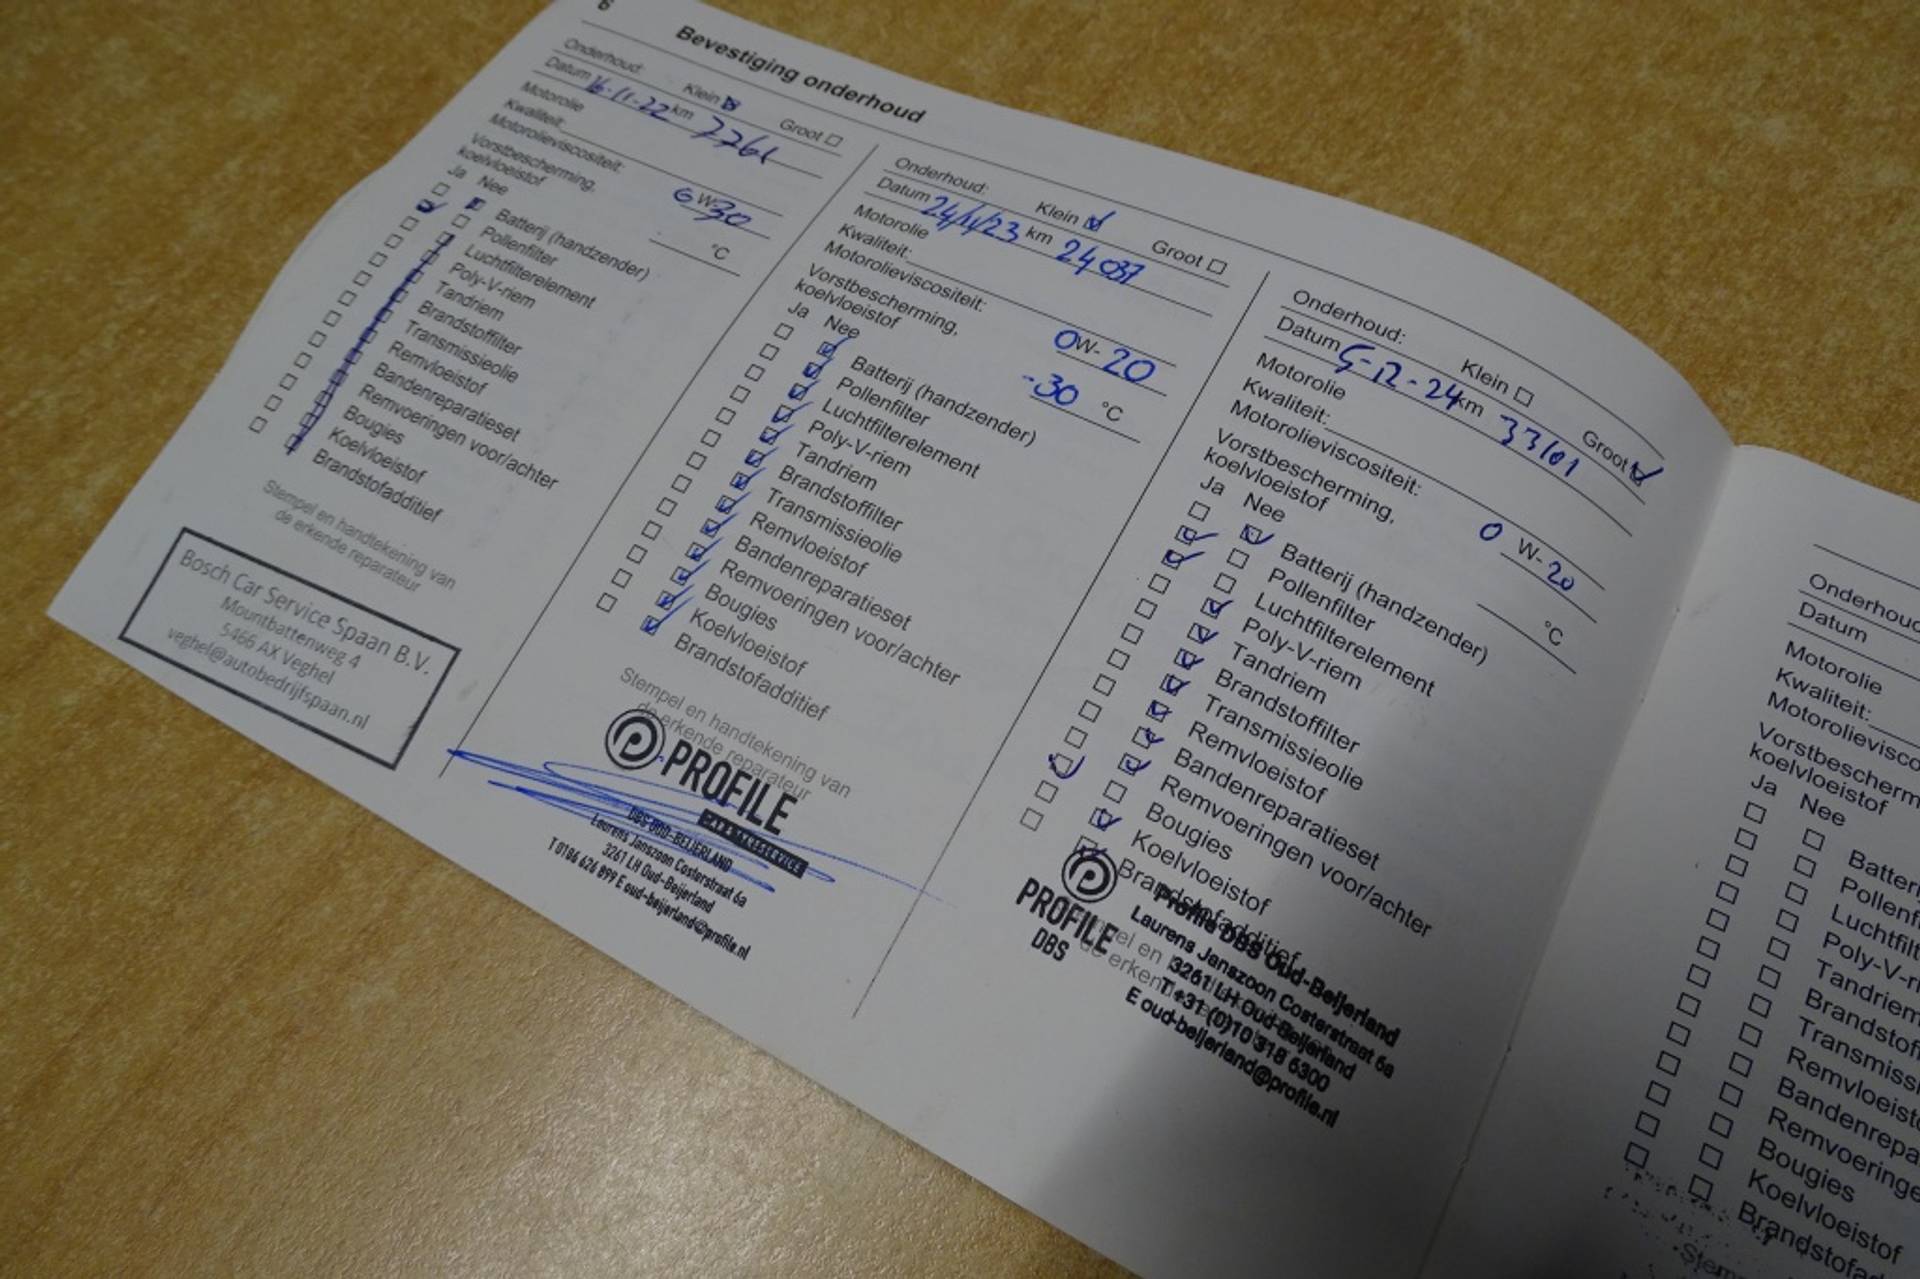 6
Bevestiging onderhoud
Onderhoud: Klein Groot
Datum 16-11-22 km 7761
Motorolie
Kwaliteit:
Motorolieviscositeit: W-30
Vorstbescherming,
koelvloeistof °C
Ja Nee
Batterij (handzender)
Pollenfilter
Luchtfilterelement
Poly-V-riem
Tandriem
Brandstoffilter
Transmissieolie
Remvloeistof
Bandenreparatieset
Remvoeringen voor/achter
Bougies
Koelvloeistof
Brandstofadditief
Stempel en handtekening van
de erkende reparateur
Bosch Car Service Spaan B.V.
Mountbattenweg 4
5466 AX Veghel
veghel@autobedrijfspaan.nl
Onderhoud: Klein Groot
Datum 24/11/23 km 24037
Motorolie
Kwaliteit:
Motorolieviscositeit: 0W-20
Vorstbescherming,
koelvloeistof -30 °C
Ja Nee
Batterij (handzender)
Pollenfilter
Luchtfilterelement
Poly-V-riem
Tandriem
Brandstoffilter
Transmissieolie
Remvloeistof
Bandenreparatieset
Remvoeringen voor/achter
Bougies
Koelvloeistof
Brandstofadditief
Stempel en handtekening van
de erkende reparateur
PROFILE
DBS OUD-BEIJERLAND
Laurens Janszoon Costerstraat 6a
3261 LH Oud-Beijerland
T 0186 626 899 E oud-beijerland@profile.nl
Onderhoud: Klein Groot
Datum 5-12-24 km 33101
Motorolie
Kwaliteit:
Motorolieviscositeit: 0 W-20
Vorstbescherming,
koelvloeistof °C
Ja Nee
Batterij (handzender)
Pollenfilter
Luchtfilterelement
Poly-V-riem
Tandriem
Brandstoffilter
Transmissieolie
Remvloeistof
Bandenreparatieset
Remvoeringen voor/achter
Bougies
Koelvloeistof
Brandstofadditief
PROFILE
DBS
Profile DBS Oud-Beijerland
Laurens Janszoon Costerstraat 6a
3261 LH Oud-Beijerland
T +31 (0)10 318 6300
E oud-beijerland@profile.nl
Onderhoud
Datum
Motorolie
Kwaliteit:
Motorolievisco
Vorstbescherm
koelvloeistof
Ja Nee
Batteri
Pollenf
Luchtfilt
Poly-V-ri
Tandriem
Brandstof
Transmiss
Remvloeist
Bandenrepa
Remvoeringe
Bougies
Koelvloeistof
Brandstofad
Stem